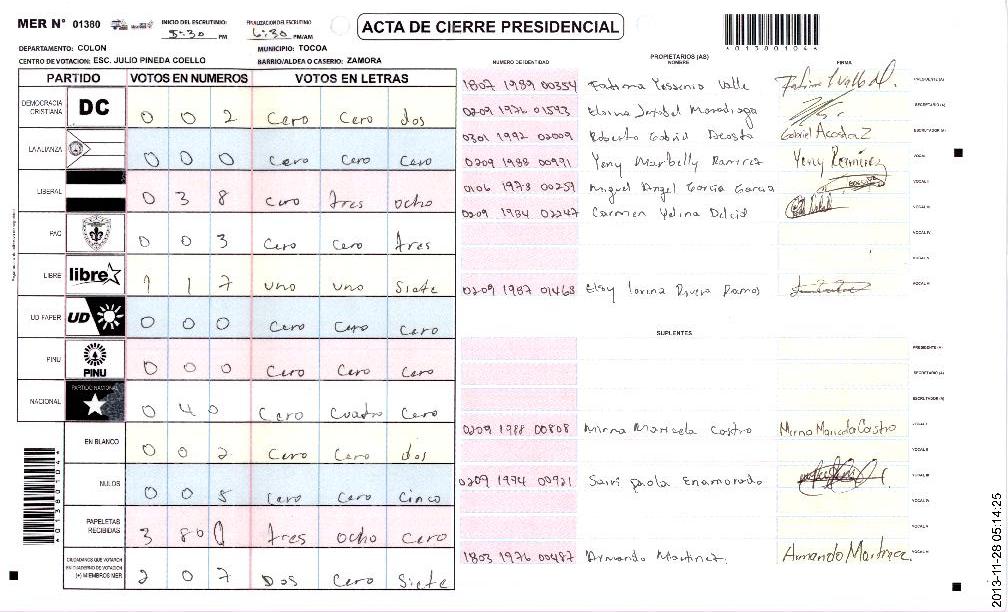 MER N° 01380 INICIO DEL ESCRUTINIO 5:30 PM FINALIZACION DEL ESCRUTINIO 6:30 PM/AM ACTA DE CIERRE PRESIDENCIAL
*01380104*
DEPARTAMENTO: COLON MUNICIPIO: TOCOA
CENTRO DE VOTACION: ESC. JULIO PINEDA COELLO BARRIO/ALDEA O CASERIO: ZAMORA
PARTIDO VOTOS EN NUMEROS VOTOS EN LETRAS
DEMOCRACIA CRISTIANA DC 0 0 2 Cero Cero dos
LA ALIANZA 0 0 0 Cero Cero Cero
LIBERAL 0 3 8 Cero tres ocho
PAC 0 0 3 Cero Cero tres
LIBRE libre 1 1 7 uno uno Siete
UD FAPER UD 0 0 0 Cero Cero Cero
PINU PINU 0 0 0 Cero Cero Cero
NACIONAL PARTIDO NACIONAL 0 4 0 Cero Cuatro Cero
EN BLANCO 0 0 2 Cero Cero dos
NULOS 0 0 5 Cero Cero Cinco
PAPELETAS RECIBIDAS 3 8 0 tres ocho Cero
CIUDADANOS QUE VOTARON EN CUADERNO DE VOTACION (+) MIEMBROS MER 2 0 7 Dos Cero Siete
PROPIETARIOS (AS)
NUMERO DE IDENTIDAD NOMBRE FIRMA
1807 1989 00354 Fatima Yessenia Valle PRESIDENTE (A)
0209 1976 01593 Elaina Isabel Maradiaga SECRETARIO (A)
0301 1992 02009 Roberto Gabriel Acosta Gabriel Acosta Z ESCRUTADOR (A)
0209 1988 00971 Yeny Marbelly Ramirez Yeny Ramirez VOCAL I
0106 1973 00259 Miguel Angel Garcia Garcia VOCAL II
0209 1984 02247 Carmen Yelina Delcid VOCAL III
VOCAL IV
VOCAL V
0209 1987 01463 Elsy Lorina Rivera Ramos VOCAL VI
SUPLENTES
PRESIDENTE (A)
SECRETARIO (A)
ESCRUTADOR (A)
0209 1988 00808 Mirna Maricela Castro VOCAL I
VOCAL II
0209 1974 00921 Sairi paola Enamorado VOCAL III
VOCAL IV
VOCAL V
1803 1976 00487 Armando Martinez Armando Martinez VOCAL VI
*01380104*
2013-11-28 05:14:25